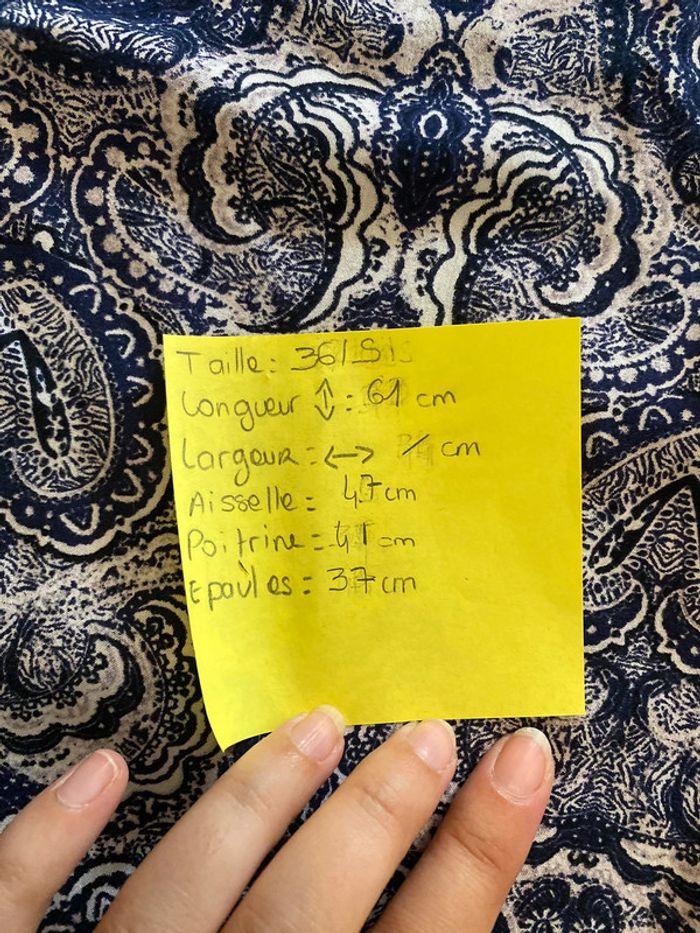 Taille : 36/S
Longueur ↕ : 61 cm
Largeur : ↔ / cm
Aisselle : 47 cm
Poitrine = 41 cm
Epaules = 37 cm